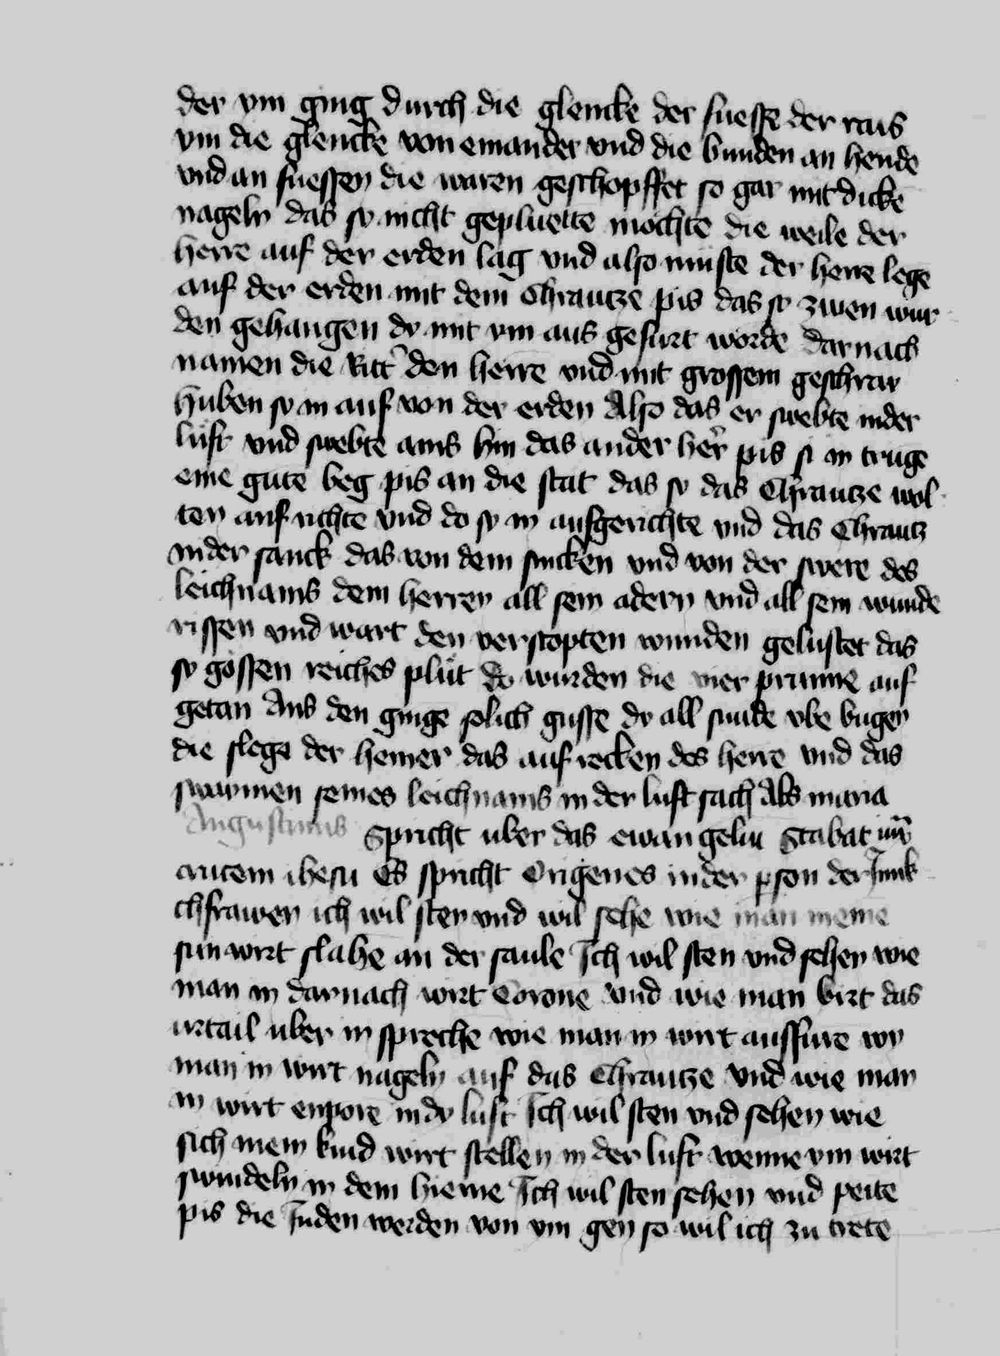 der ym ging durch die glencke der fuesse der rais
ym die glencke von einander vnd die bunden an hende
vnd an fuessen die waren geschopffet so gar mit dicke
nageln das sy nicht gepluette mochte die weile der
herre auf der erden lag vnd also muste der herre lege
auf der erden mit dem Chrautze pis das sy zwen wur
den gehangen dy mit ym aus gefurt worde darnach
namen die Ritt̄ den herre vnd mit grossem geschray
huben sy in auf von der erden Also das er swebte inder
luft vnd swebte ains hin das ander her pis si in truge
eine gute beg pis an die stat das sy das Chrautze wol
ten auf richte vnd do sy in aufgerichte vnd das Chrautz
nider sanck das von dem sincken vnd von der swere des
leichnams dem herren all sein adern vnd all sein wunde
rissen vnd wart den verstopten wunden geluftet das
sy gossen reiches plut do wurden die vier prunne auf
getan Aus den ginge solich gusse dy all sunde vbe bugen
die slege der hemer das auf recken des herre vnd das
swaimen seines leichnams in der luft sach Als maria
Augustinus Spricht uber das ewangeliu Stabat iux̄
crucem ihesu Es spricht Origenes inder pson der Junk
chfrawen ich wil sten vnd wil sehe wie man meine
sun wirt slahe an der saule Ich wil sten vnd sehen wie
man in darnach wirt Corone vnd wie man birt das
urtail uber in spreche wie man in wirt ausfure wy
man in wirt nageln auf das Chrautze vnd wie man
in wirt enpore indy luft Ich wil sten vnd sehen wie
sich mein kind wirt stellen in der luft wenne ym wirt
swindeln in dem hirne Ich wil sten sehen vnd peite
pis die Juden werden von ym gen so wil ich zu trete